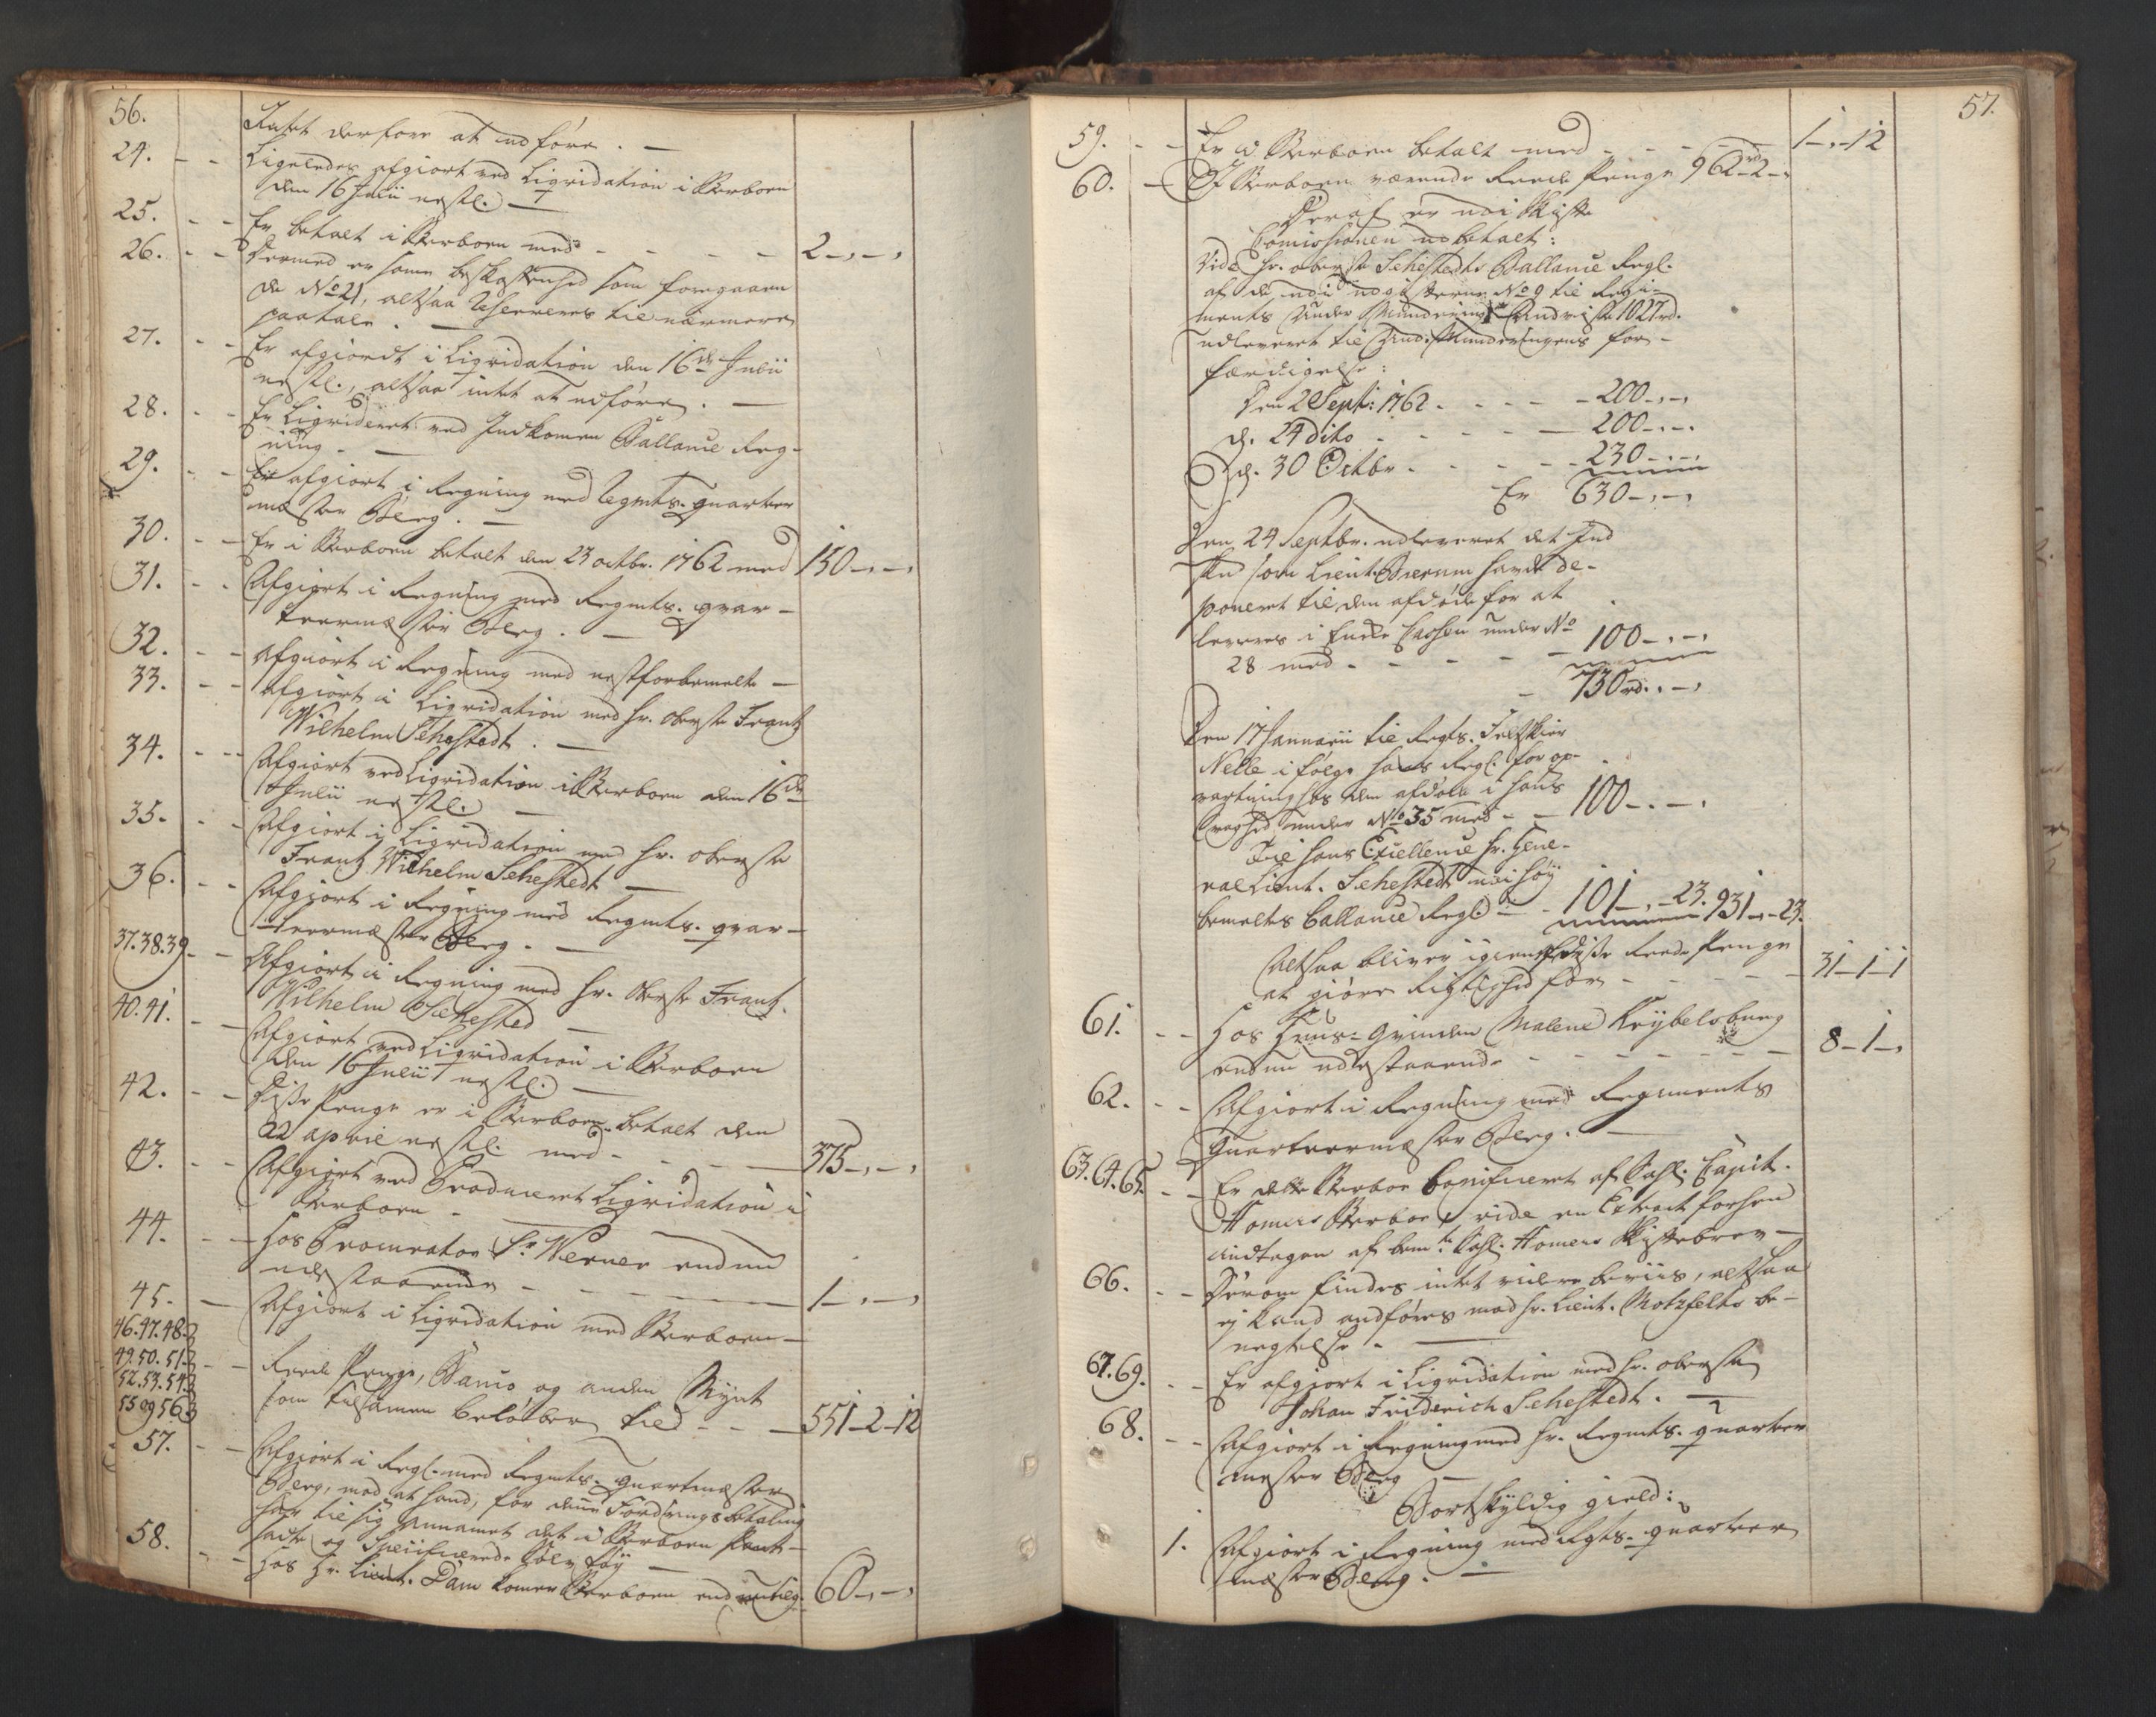 56.
Intet derfore at udføre. —
24. - - Ligeledes afgiort ved Liqvidation i Sterboen
den 16 Julii nestl. —
25. - - Er betalt i Sterboen med - - - - 2 - , - ,
26. - - Dermed er samme beskaffenhed som foregaaende
No 21, altsaa Reserveres til nærmere
paatale. —
27. - - Er afgiordt i Liqvidation den 16de Julii
nestl., altsaa intet at udføre. —
28. - - Er Liqvideret ved Indkomen Ballance Reg-
ning. —
29. - - Er afgiort i Regning med Regmts. quarteer
mæster Berg. —
30. - - Er i Sterboen betalt den 23 octbr. 1762 med 150 - , - ,
31. - - Afgiort i Regning med Regmts. qvar-
teermæster Berg. —
32. - - Afgiort i Regning med nestforbemelte —
33. - - Afgiort i Liqvidation med hr. oberste Frantz
Wilhelm Sehestedt. —
34. - - - Afgiort ved Liqvidation i Sterboen den 16de
Julii nestl. —
35. - - Afgiort i Liqvidation med hr. oberste
Frantz Wilhelm Sehestedt —
36. - - Afgiort i Regning med Regmts. qvar-
teermæster Berg. —
37.38.39. - - Afgiort i Regning med hr. Oberste Frantz
Wilhelm Sehested —
40.41. - - Afgiort ved Liqvidation i Sterboen
den 16 Julii nestl. —
42. - - Disse Penge er i Sterboen betalt den
22 april nestl. med - - - - 375 - , - ,
43. - - Afgiort ved Produceret Liqvidation i
Sterboen - —
44. - - Hos Procurator Sr. Werner endnu
udestaaende - - - - 1 - , - ,
45. - Afgiort i Liqvidation med Sterboen —
46.47.48.
49.50.51. - - Reede Penge, Banco og anden Mynt
52.53.54.
55 og 56 som tilsamen beløber til - - - 551 - 2 - 12
57. - - Afgiort i Regl. med Regmts. quartmæster
Berg, mod at hand, for denne Fordrings betaling
har til sig Annamet det i Sterboen pant-
satte og Specificerede Sølv tøy —
58. - - Hos Hr. Lieut. Dam komer Sterboen end 60 - , - ,
57.
59. - - Er i Sterboen betalt med - - - - 1 - , - 12
60. - I Sterboen værende Reede Penge 962 rd 2 - ,
Deraf er udi Skifte
Comissionen udbetalt:
Vide hr. oberste Sehestedts Ballance Regl.
af de udi No 9 til Regi-
ments Munderings 1027 rd.
udleveret til Munderingens for-
færdigelse:
Den 2 Sept: 1762 - - - - 200 - , - ,
d. 24 dito - - - - 200 - , - ,
d. 30 Octbr - - - - 230 - , - ,
Er 630 - , - ,
Den 24 Septbr. udleveret det
som Lieut. havde de-
poneret til den afdøde for at
leveres i Enke Cassen under No
28 med - - - - 100 - , - ,
- 730 rd. , - ,
Den 17 Januarii til Regts. Feltskiær
Nelle i følge hans Regl. for op-
vartning hos den afdøde i hans
svaghed under No 35 med - - 100 - , - ,
Til hans Excellence hr. Gene-
ral Lieut. Sehestedt udi høy
bemelts Ballance Regl. - - 101 - , - 23. 931 - , - 23.
Altsaa bliver igien af disse Reede Penge
at giøre Rigtighed for - - - - 31 - 1 - 1
61. - - Hos Huus-Qvinden Malene Krybelsburg
endnu udestaaende - - - - 8 - 1 - ,
62. - - Afgiort i Regning med Regiments
Quarteermæster Berg. —
63.64.65. - - Er dette Sterboe bonificeret af Sahl. Capit.
Homers Sterboe, vide en Extract forhen
indtagen af bemte Sahl. Homers Skiftebrev —
66. - - Herom findes intet videre beviis, altsaa
ej kand anføres mod hr. Lieut. Motzfelts be-
negtelse. —
67.69. - - Er afgiort i Liqvidation med hr. oberste
Johan Friderich Sehestedt. —
68. - - Afgiort i Regning med hr. Regmts. quarteer
mester Berg —
Bortskyldig gield:
1. Afgiort i Regning med Rgts. quarteer
mæster Berg. —